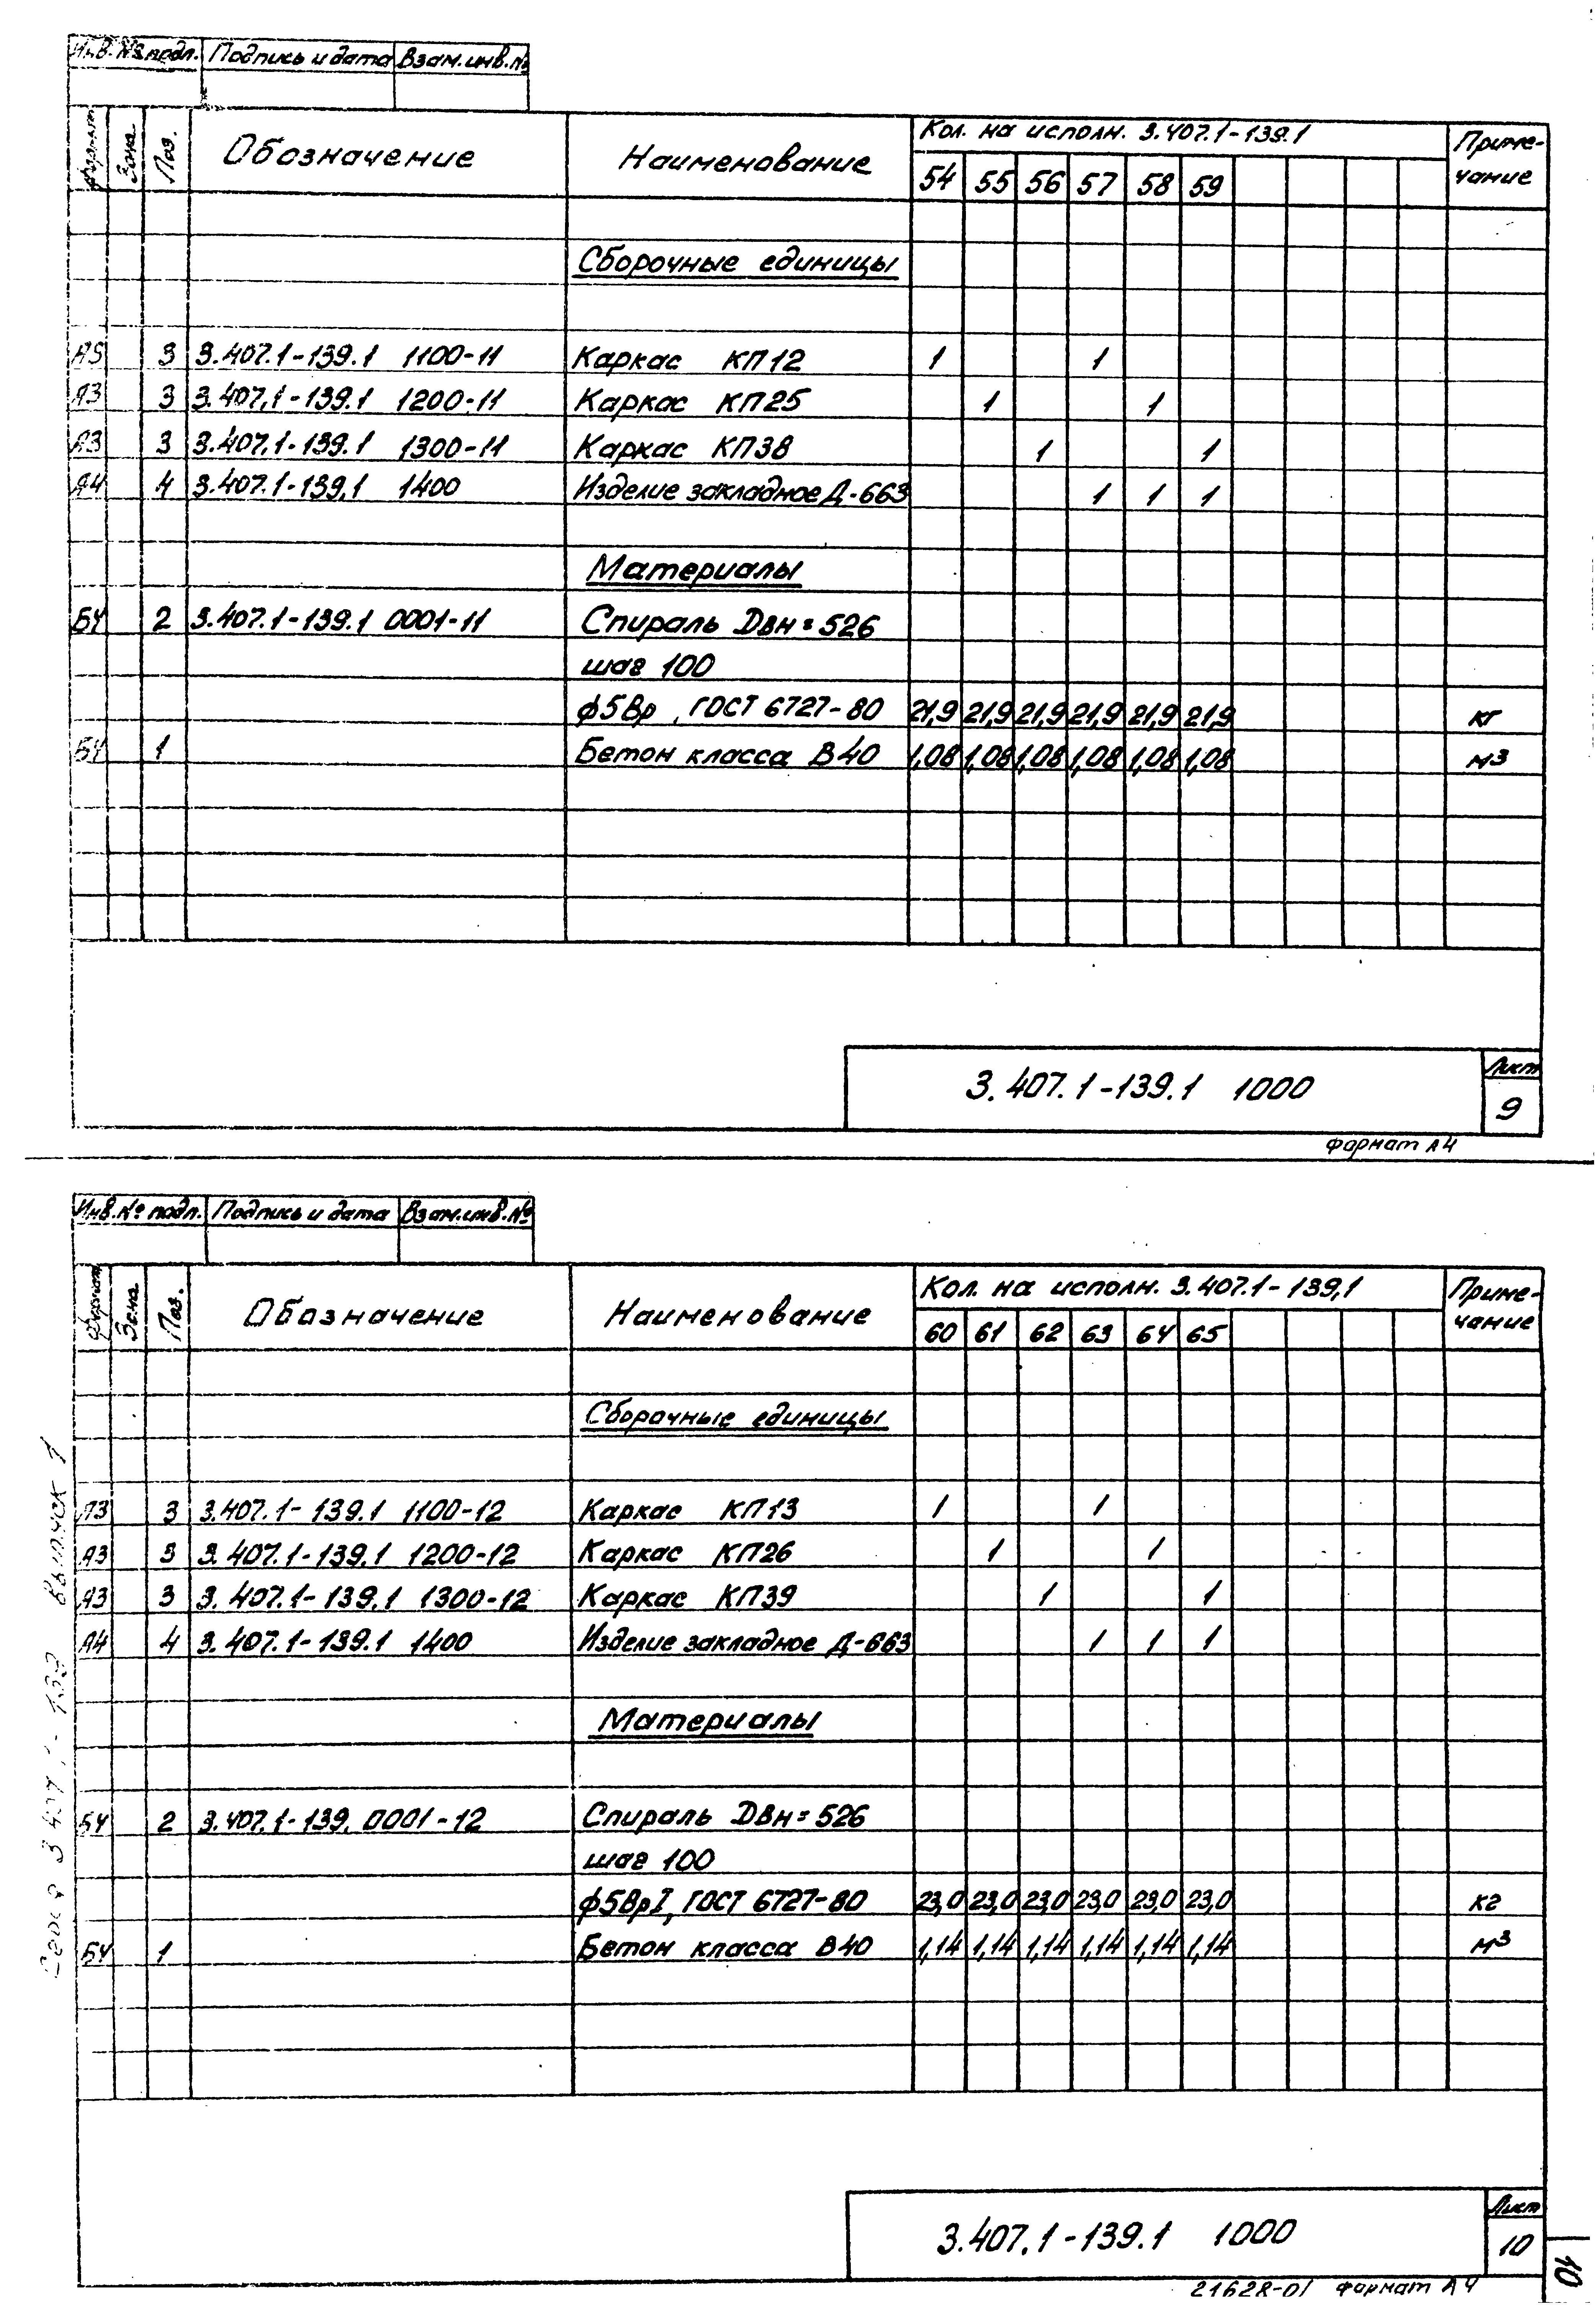 Инв. № подл. Подпись и дата Взам. инв. №
Формат Зона Поз. Обозначение Наименование Кол. на исполн. 3.407.1-139.1 Приме-чание
54 55 56 57 58 59
Сборочные единицы
3 3.407.1-139.1 1100-11 Каркас КП12 1 1
А3 3 3.407.1-139.1 1200-11 Каркас КП25 1 1
А3 3 3.407.1-139.1 1300-11 Каркас КП38 1 1
А4 4 3.407.1-139.1 1400 Изделие закладное Д-663 1 1 1
Материалы
БЧ 2 3.407.1-139.1 0001-11 Спираль Dвн=526
шаг 100
ф5Вр , ГОСТ 6727-80 21,9 21,9 21,9 21,9 21,9 21,9 кг
БЧ 1 Бетон класса В40 1,08 1,08 1,08 1,08 1,08 1,08 м3
3.407.1-139.1 1000 Лист 9
Формат А4
Инв. № подл. Подпись и дата Взам. инв. №
Формат Зона Поз. Обозначение Наименование Кол. на исполн. 3.407.1-139,1 Приме-чание
60 61 62 63 64 65
Сборочные единицы
А3 3 3.407.1-139.1 1100-12 Каркас КП13 1 1
А3 3 3.407.1-139.1 1200-12 Каркас КП26 1 1
А3 3 3.407.1-139.1 1300-12 Каркас КП39 1 1
А4 4 3.407.1-139.1 1400 Изделие закладное Д-663 1 1 1
Материалы
БЧ 2 3.407.1-139. 0001-12 Спираль Dвн=526
шаг 100
ф5ВрI, ГОСТ 6727-80 23,0 23,0 23,0 23,0 23,0 23,0 кг
БЧ 1 Бетон класса В40 1,14 1,14 1,14 1,14 1,14 1,14 м3
3.407.1-139.1 1000 Лист 10
формат А4
10
Выпуск 1